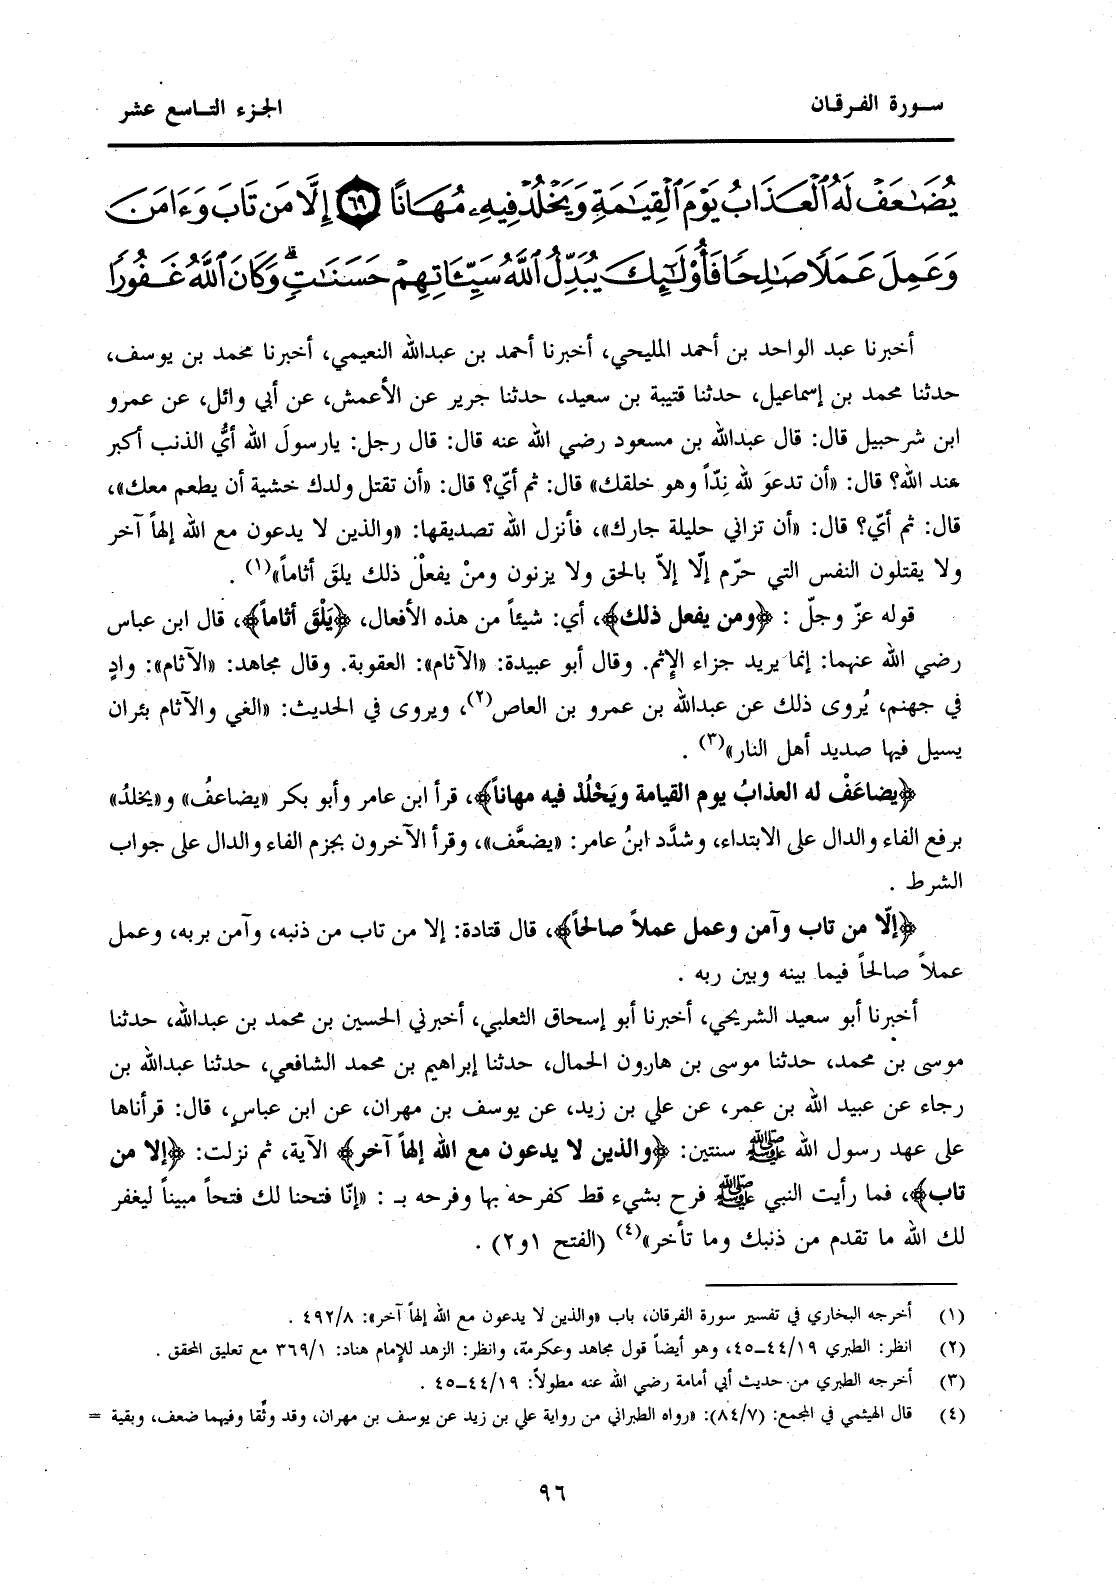 سورة الفرقان
الجزء التاسع عشر
يُضَٰعَفْ لَهُ ٱلْعَذَابُ يَوْمَ ٱلْقِيَٰمَةِ وَيَخْلُدْ فِيهِۦ مُهَانًا ٦٩ إِلَّا مَن تَابَ وَءَامَنَ
وَعَمِلَ عَمَلًا صَٰلِحًا فَأُو۟لَٰٓئِكَ يُبَدِّلُ ٱللَّهُ سَيِّـَٔاتِهِمْ حَسَنَٰتٍ ۗ وَكَانَ ٱللَّهُ غَفُورًا
أخبرنا عبد الواحد بن أحمد المليحي، أخبرنا أحمد بن عبدالله النعيمي، أخبرنا محمد بن يوسف،
حدثنا محمد بن إسماعيل، حدثنا قتيبة بن سعيد، حدثنا جرير عن الأعمش، عن أبي وائل، عن عمرو
ابن شرحبيل قال: قال عبدالله بن مسعود رضي الله عنه قال: قال رجل: يارسولَ الله أيُّ الذنب أكبر
عند الله؟ قال: «أن تدعوَ لله نِدّاً وهو خلقك» قال: ثم أيّ؟ قال: «أن تقتل ولدك خشية أن يطعم معك»،
قال: ثم أيّ؟ قال: «أن تزاني حليلة جارك»، فأنزل الله تصديقها: «والذين لا يدعون مع الله إلهاً آخر
ولا يقتلون النفس التي حرّم إلّا إلاّ بالحق ولا يزنون ومنْ يفعلْ ذلك يلقَ أثاماً»(١) .
قوله عزّ وجلّ : ﴿ومن يفعل ذلك﴾، أي: شيئاً من هذه الأفعال، ﴿يَلْقَ أثاماً﴾، قال ابن عباس
رضي الله عنهما: إنما يريد جزاء الإثم. وقال أبو عبيدة: «الآثام»: العقوبة. وقال مجاهد: «الآثام»: وادٍ
في جهنم، يُروى ذلك عن عبدالله بن عمرو بن العاص(٢)، ويروى في الحديث: «الغي والآثام بئران
يسيل فيها صديد أهل النار»(٣) .
﴿يضاعَفْ له العذابُ يوم القيامة ويَخْلُدْ فيه مهاناً﴾، قرأ ابن عامر وأبو بكر «يضاعفُ» و«يخلدُ»
برفع الفاء والدال على الابتداء، وشدَّد ابنُ عامر: «يضعَّف»، وقرأ الآخرون بجزم الفاء والدال على جواب
الشرط .
﴿إلّا من تاب وآمن وعمل عملاً صالحاً﴾، قال قتادة: إلا من تاب من ذنبه، وآمن بربه، وعمل
عملاً صالحاً فيما بينه وبين ربه .
أخبرنا أبو سعيد الشريحي، أخبرنا أبو إسحاق الثعلبي، أخبرني الحسين بن محمد بن عبدالله، حدثنا
موسى بن محمد، حدثنا موسى بن هارون الحمال، حدثنا إبراهيم بن محمد الشافعي، حدثنا عبدالله بن
رجاء عن عبيد الله بن عمر، عن علي بن زيد، عن يوسف بن مهران، عن ابن عباس، قال: قرأناها
على عهد رسول الله ﷺ سنتين: ﴿والذين لا يدعون مع الله إلهاً آخر﴾ الآية، ثم نزلت: ﴿إلا من
تاب﴾، فما رأيت النبي ﷺ فرح بشيء قط كفرحه بها وفرحه بـ : «إنّا فتحنا لك فتحاً مبيناً ليغفر
لك الله ما تقدم من ذنبك وما تأخر»(٤) (الفتح ١و٢) .
(١) أخرجه البخاري في تفسير سورة الفرقان، باب «والذين لا يدعون مع الله إلهاً آخر»: ٤٩٢/٨ .
(٢) انظر: الطبري ٤٤/١٩_٤٥، وهو أيضاً قول مجاهد وعكرمة، وانظر: الزهد للإمام هناد: ٣٦٩/١ مع تعليق المحقق .
(٣) أخرجه الطبري من حديث أبي أمامة رضي الله عنه مطولاً: ٤٤/١٩_٤٥ .
(٤) قال الهيثمي في المجمع: (٨٤/٧): «رواه الطبراني من رواية علي بن زيد عن يوسف بن مهران، وقد وثِّقا وفيهما ضعف، وبقية =
٩٦